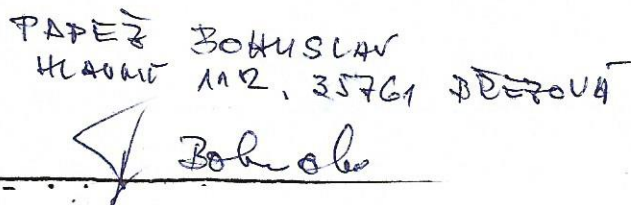 PAPEŽ BOHUSLAV
HLAVNÍ 112, 35761 BŘEZOVÁ